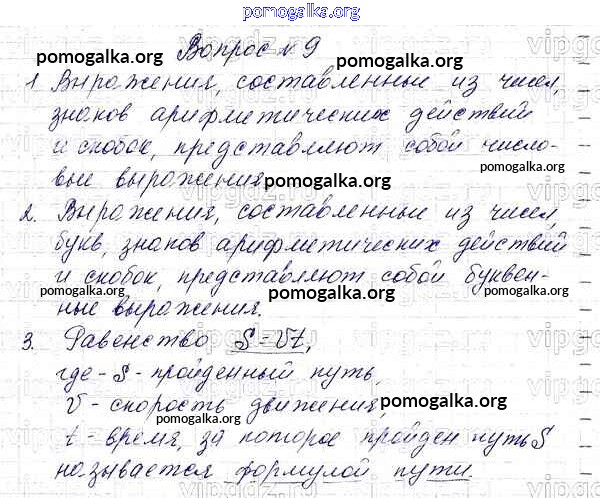 pomogalka.org
Вопрос №9
pomogalka.org
pomogalka.org
1 Выражения, составленные из чисел,
знаков арифметических действий
и скобок, представляют собой число-
pomogalka.org
вые выражения
pomogalka.org
2. Выражения, составленные из чисел,
букв, знаков арифметических действий
и скобок, представляют собой буквен-
pomogalka.org
pomogalka.org
pomogalka.org
ные выражения.
3. Равенство S-Vt,
где - S - пройденный путь,
V - скорость движения,
pomogalka.org
t - время, за которое пройден путь S
называется формулой пути.